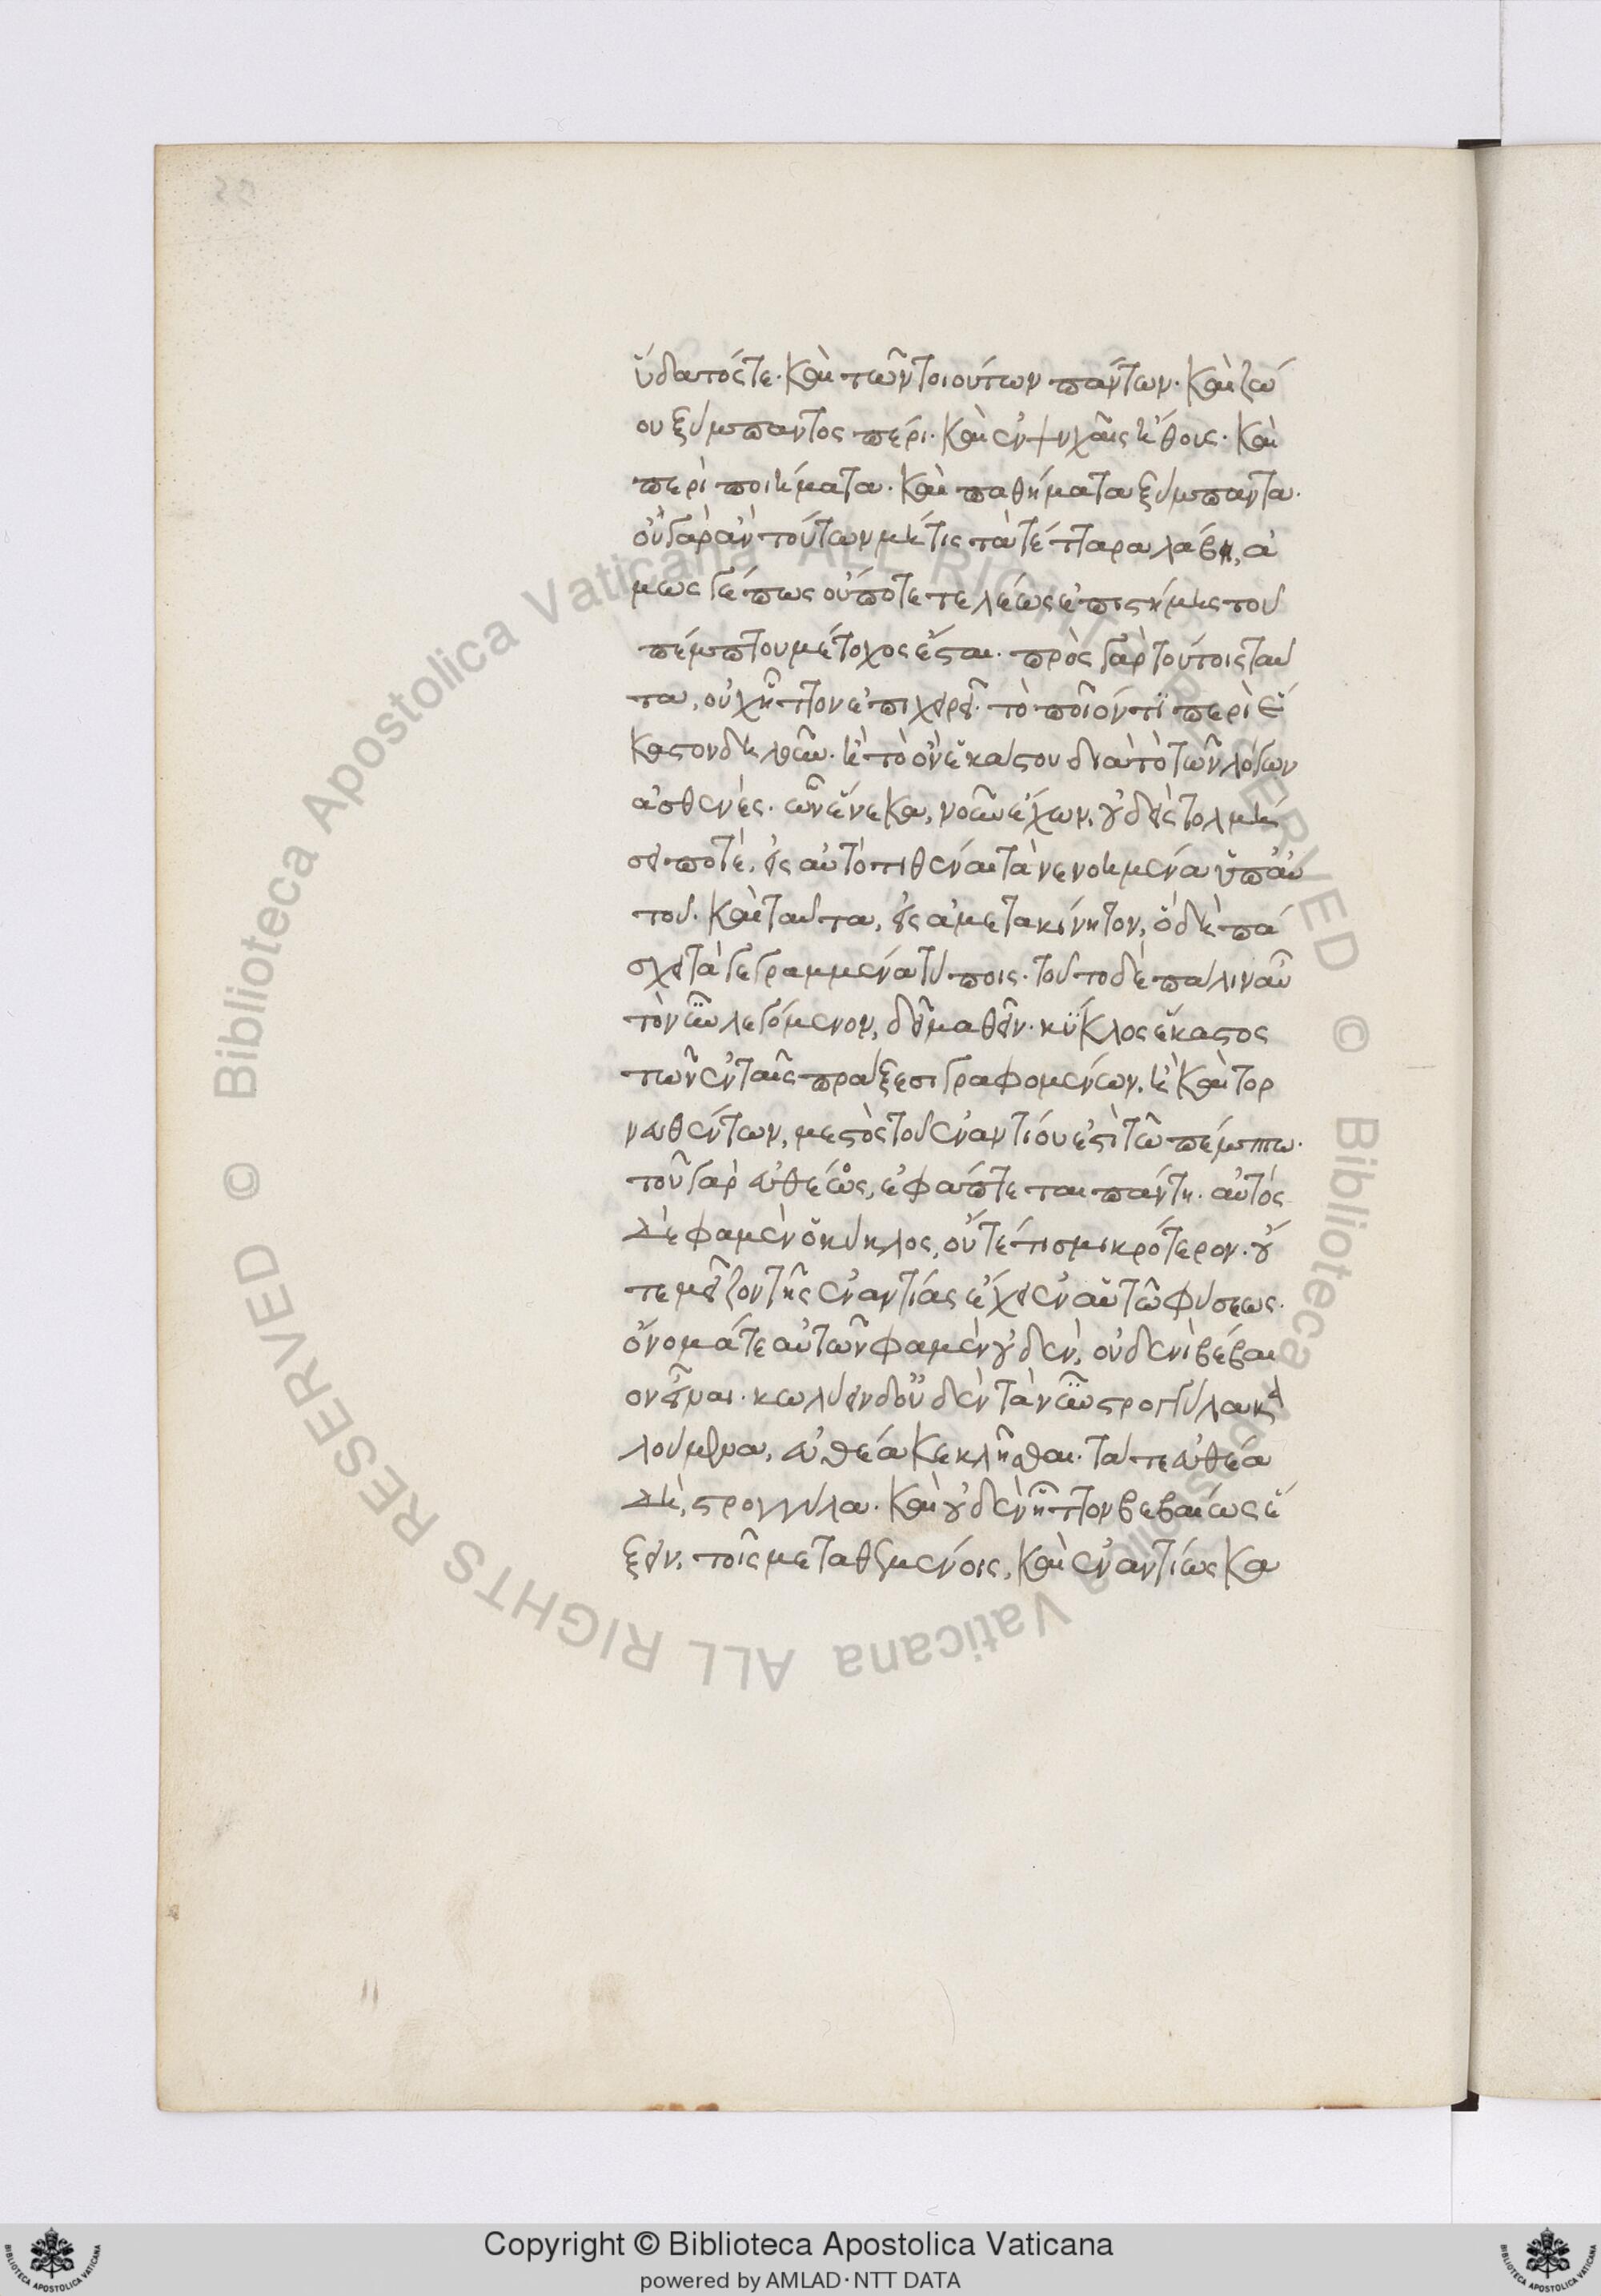 ὕδατός τε· καὶ τῶν τοιούτων πάντων· καὶ ζώ
ου ξύμπαντος πέρι· καὶ ἐν ψυχαῖς ἤθους· καὶ
περὶ ποιήματα· καὶ παθήματα ξύμπαντα·
οὐ γὰρ ἂν τούτων μή τις τὰ τέτταρα λάβῃ, ἁ
μῶς γέ πως οὔποτε τελέως ἐπιστήμης τοῦ
πέμπτου μέτοχος ἔσται· πρὸς γὰρ τούτοις ταῦ
τα, οὐχ ἧττον ἐπιχειρεῖ· τὸ ποῖόν τι περὶ ἕ
καστον δηλοῦν· ἢ τὸ ὂν ἑκάστου διὰ τὸ τῶν λόγων
ἀσθενές· ὧν ἕνεκα, νοῦν ἔχων, οὐδεὶς τολμή
σει ποτὲ, εἰς αὐτὸ τιθέναι τὰ νενοημένα ὑπ' αὐ
τοῦ· καὶ ταῦτα, εἰς ἀμετακίνητον, ὃ δὴ πά
σχει τὰ γεγραμμένα τύποις· τοῦτο δὲ πάλιν αὖ
τὸ νῦν λεγόμενον, δεῖ μαθεῖν· κύκλος ἕκαστος
τῶν ἐν ταῖς πράξεσι γραφομένων, ἢ καὶ τορ
νευθέντων, μεστὸς τοῦ ἐναντίου ἐστὶ τῷ πέμπτῳ·
τοῦ γὰρ εὐθέως, ἐφάπτεται πάντῃ· αὐτὸς
δέ φαμεν ὁ κύκλος, οὔτέ τι σμικρότερον· οὔ
τε μεῖζον τῆς ἐναντίας ἔχει ἐν αὑτῷ φύσεως·
ὄνομά τε αὐτῶν φαμὲν οὐδὲν, οὐδενὶ βέβαι
ον εἶναι· κωλύειν δ' οὐδὲν τὰ νῦν στρογγύλα κα
λούμενα, εὐθέα κεκλῆσθαι· τά τε εὐθέα
δὴ, στρογγύλα· καὶ οὐδὲν ἧττον βεβαίως ἕ
ξειν, τοῖς μεταθεμένοις, καὶ ἐναντίως κα
Copyright © Biblioteca Apostolica Vaticana
powered by AMLAD·NTT DATA